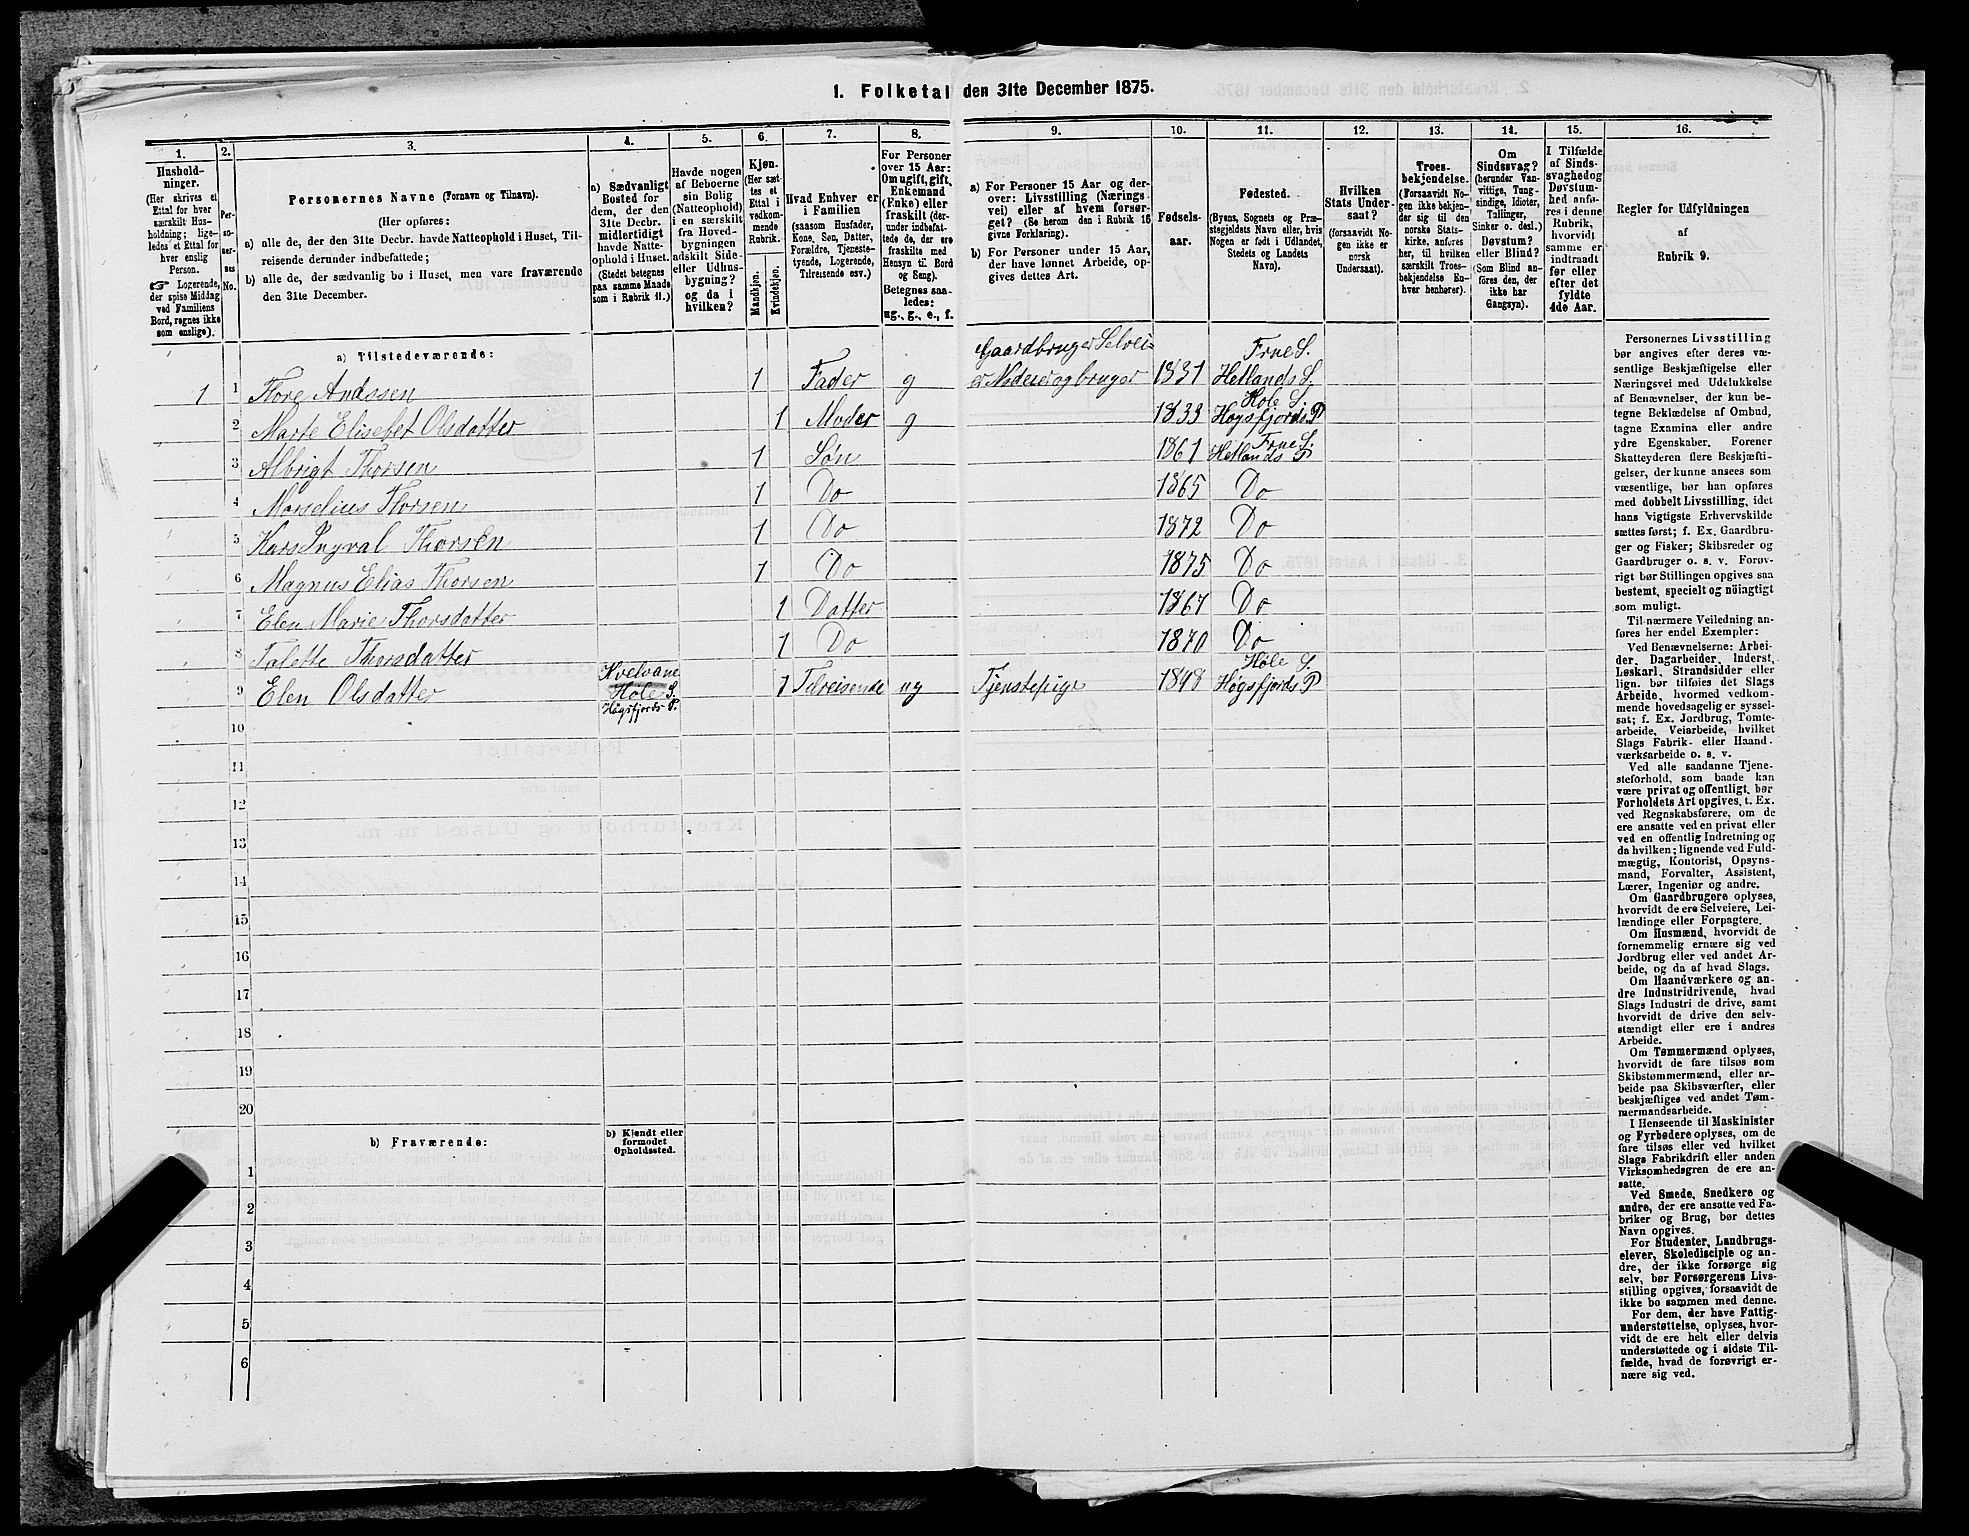 1. Folketal den 31te December 1875.
1. 2. 3. 4. 5. 6. 7. 8. 9. 10. 11. 12. 13. 14. 15. 16.
Husholdninger.
(Her skrives et
Ettal for hver
særskilt Hus-
holdning; lige-
ledes et Ettal for
hver enslig
Person.
☞ Logerende,
der spise Middag
ved Familiens
Bord, regnes ikke
som enslige).
Per-
so-
ner-
nes
No.
Personernes Navne (Fornavn og Tilnavn).
(Her opføres:
a) alle de, der den 31te Decbr. havde Natteophold i Huset, Til-
reisende derunder indbefattede;
b) alle de, der sædvanlig bo i Huset, men vare fraværende
den 31te December.
a) Sædvanligt
Bosted for
dem, der den
31te Decbr.
midlertidigt
havde Natte-
ophold i Huset.
(Stedet betegnes
paa samme Maade
som i Rubrik 11.)
Havde nogen
af Beboerne
sin Bolig
(Natteophold)
i en særskilt
fra Hoved-
bygningen
adskilt Side-
eller Udhus-
bygning?
og da i
hvilken?
Kjøn.
(Her sæt-
tes et
Ettal i
vedkom-
mende
Rubrik.
Mandkjøn.
Kvindekjøn.
Hvad Enhver er
i Familien
(saasom Husfader,
Kone, Søn, Datter,
Forældre, Tjeneste-
tyende, Logerende,
Tilreisende osv.)
For Personer
over 15 Aar:
Om ugift, gift,
Enkemand
(Enke) eller
fraskilt (der-
under indbefat-
tede de, der ere
fraskilte med
Hensyn til Bord
og Seng).
Betegnes saa-
ledes:
ug., g., e., f.
a) For Personer 15 Aar og der-
over: Livsstilling (Nærings-
vei) eller af hvem forsør-
get? (Se herom den i Rubrik 16
givne Forklaring).
b) For Personer under 15 Aar,
der have lønnet Arbeide, op-
gives dettes Art.
Fødsels-
aar.
Fødested.
(Byens, Sognets og Præ-
stegjeldets Navn eller, hvis
Nogen er født i Udlandet,
Stedets og Landets
Navn).
Hvilken
Stats Under-
saat?
(forsaavidt No-
gen ikke er
norsk
Undersaat).
Troes-
bekjendelse.
(Forsaavidt No-
gen ikke bekjen-
der sig til den
norske Stats-
kirke, anføres
her, til hvilken
særskilt Troes-
bekjendelse En-
hver henhører).
Om
Sindssvag?
(herunder Van-
vittige, Tung-
sindige, Idioter,
Tullinger,
Sinker o. desl.)
Døvstum?
eller Blind?
(Som Blind an-
føres den, der
ikke har
Gangsyn).
I Tilfælde
af Sinds-
svaghed og
Døvstum-
hed anfø-
res i denne
Rubrik,
hvorvidt
samme er
indtraadt
før eller
efter det
fyldte
4de Aar.
Regler for Udfyldningen
af
Rubrik 9.
a) Tilstedeværende:
1 1 Tore Andssen 1 Fader g Gaardbruger Selvei- er Nodeier og bruger 1831 Frue S. Hetlands S.
2 Marte Elisebet Olsdatter 1 Moder g 1833 Høle S. Høgsfjords P
3 Albrigt Thorsen 1 Søn 1861 Frue S. Hetlands P
4 Marselius Thorsen 1 Do 1865 Do
5 Kars Ingval Thorsen 1 Do 1872 Do
6 Magnus Elias Thorsen 1 Do 1875 Do
7 Elen Marie Thorsdatter 1 Datter 1867 Do
8 Talette Thorsdatter 1 Do 1870 Do
9 Elen Olsdatter Kvelvane Høle S. Høgsfjords P. 1 Tilreisende ug Tjenstepige 1848 Høle S. Høgsfjords P
10
11
12
13
14
15
16
17
18
19
20
b) Fraværende:
b) Kjendt eller
formodet
Opholdssted.
1
2
3
4
5
6
Personernes Livsstilling
bør angives efter deres væ-
sentlige Beskjæftigelse eller
Næringsvei med Udelukkelse
af Benævnelser, der kun be-
tegne Beklædelse af Ombud,
tagne Examina eller andre
ydre Egenskaber. Forener
Skatteyderen flere Beskjæfti-
gelser, der kunne ansees som
væsentlige, bør han opføres
med dobbelt Livsstilling, idet
hans vigtigste Erhvervskilde
sættes først; f. Ex. Gaardbru-
ger og Fisker; Skibsreder og
Gaardbruger o. s. v. Forøv-
rigt bør Stillingen opgives saa
bestemt, specielt og nöiagtigt
som muligt.
Til nærmere Veiledning an-
føres her endel Exempler:
Ved Benævnelserne: Arbei-
der, Dagarbeider, Inderst,
Løskarl, Strandsidder eller
lign. bør tilføies det Slags
Arbeide, hvormed vedkom-
mende hovedsagelig er syssel-
sat; f. Ex. Jordbrug, Tomte-
arbeide, Veiarbeide, hvilket
Slags Fabrik- eller Haand-
værksarbeide o. s. v.
Ved alle saadanne Tjene-
steforhold, som baade kan
være privat og offentligt, bør
Forholdets Art opgives, t. Ex.
ved Regnskabsførere, om de
ere ansatte ved en privat eller
ved en offentlig Indretning og
da hvilken; lignende ved Fuld-
mægtig, Kontorist, Opsyns-
mand, Forvalter, Assistent,
Lærer, Ingeniør og andre.
Om Gaardbrugere oplyses,
hvorvidt de ere Selveiere, Lei-
lændinge eller Forpagtere.
Om Husmænd, hvorvidt de
fornemmelig ernære sig ved
Jordbrug eller ved andet Ar-
beide, og da af hvad Slags.
Om Haandværkere og an-
dre Industridrivende, hvad
Slags Industri de drive, samt
hvorvidt de drive den selv-
stændigt eller ere i andres
Arbeide.
Om Tømmermænd oplyses,
hvorvidt de fare tilsøs som
Skibstømmermænd, eller ar-
beide paa Skibsværfter, eller
beskjæftiges ved andet Tøm-
mermandsarbeide.
I Henseende til Maskinister
og Fyrbødere oplyses, om de
fare tilsøs eller ved hvilket
Slags Fabrikdrift eller anden
Virksomhedsgren de ere an-
satte.
Ved Smede, Snedkere og
andre, der ere ansatte ved Fa-
briker og Brug, bør dettes
Navn opgives.
For Studenter, Landbrugs-
elever, Skoledisciple og an-
dre, der ikke forsørge sig
selv, bør Forsørgerens Livs-
stilling opgives, forsaavidt de
ikke bo sammen med denne.
For dem, der have Fattig-
understøttelse, oplyses, hvor-
vidt de ere helt eller delvis
understøttede og i sidste Til-
fælde, hvad de forøvrigt er-
nære sig ved.